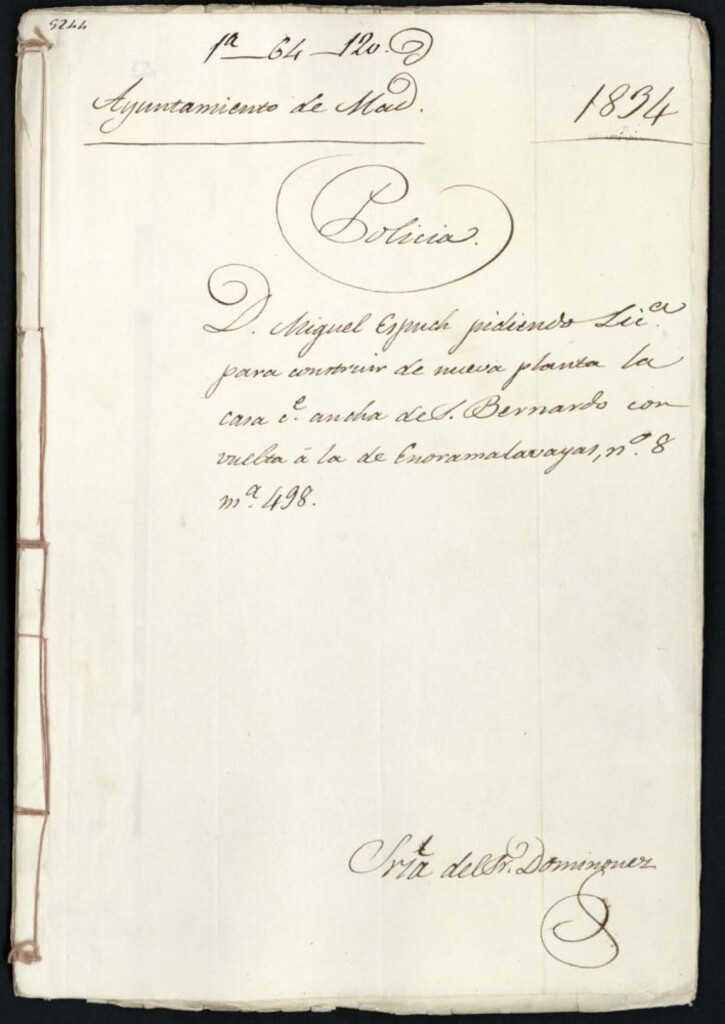 5244
1ª–64–120.
Ayuntamiento de Mad.
1834
Policia.
D. Miguel Espuch pidiendo Licª.
para construir de nueva planta la
casa cᵉ. ancha de S. Bernardo con
vuelta á la de Enoramalavayas, nº. 8
mª. 498.
Srîa del Sr. Dominguez